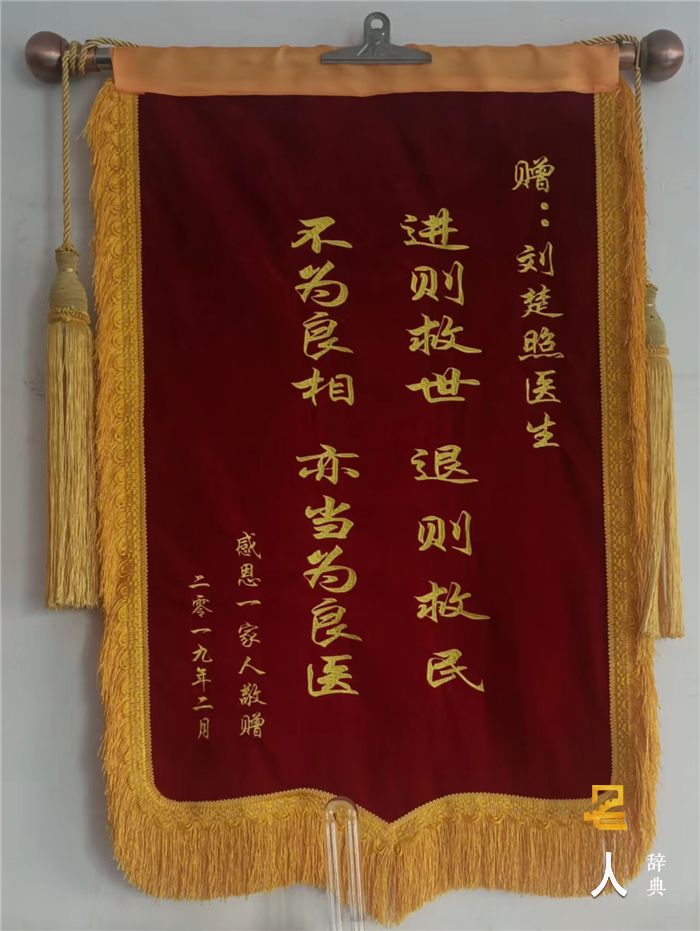 赠：刘楚照医生
进则救世 退则救民
不为良相 亦当为良医
感恩一家人敬赠
二零一九年二月
名人辞典